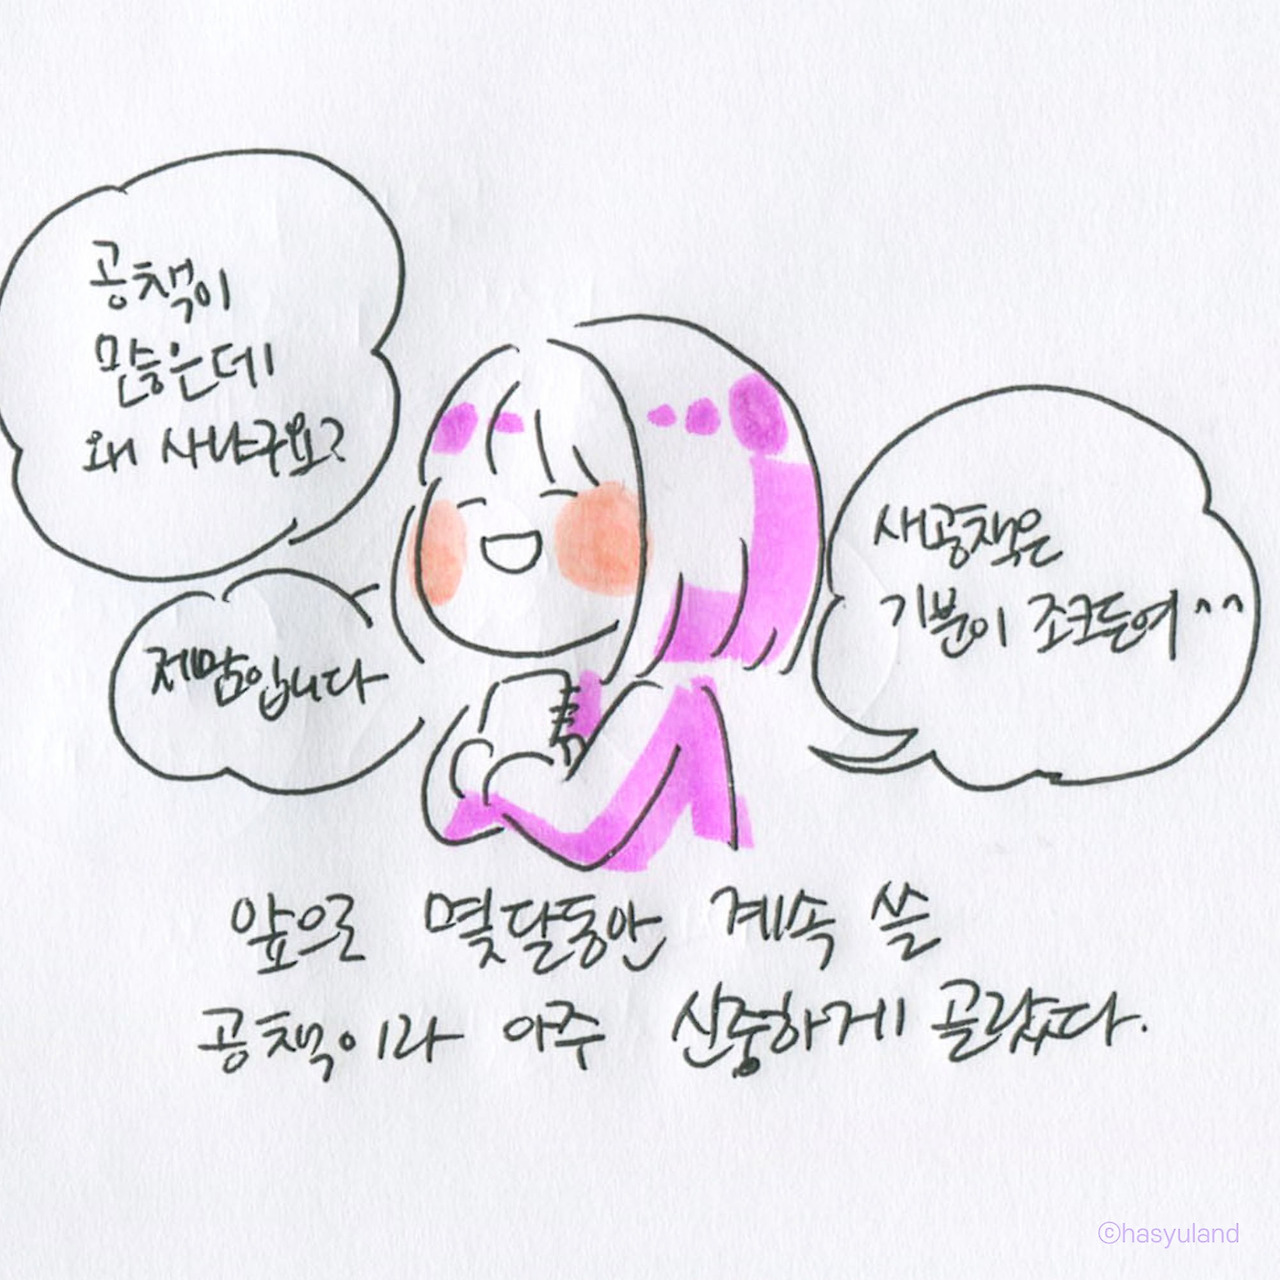 공책이
많은데
왜 사냐구요?
제맘입니다
새공책은
기분이 조크든여^^
앞으로 몇달동안 계속 쓸
공책이라 아주 신중하게 골랐다.
©hasyuland